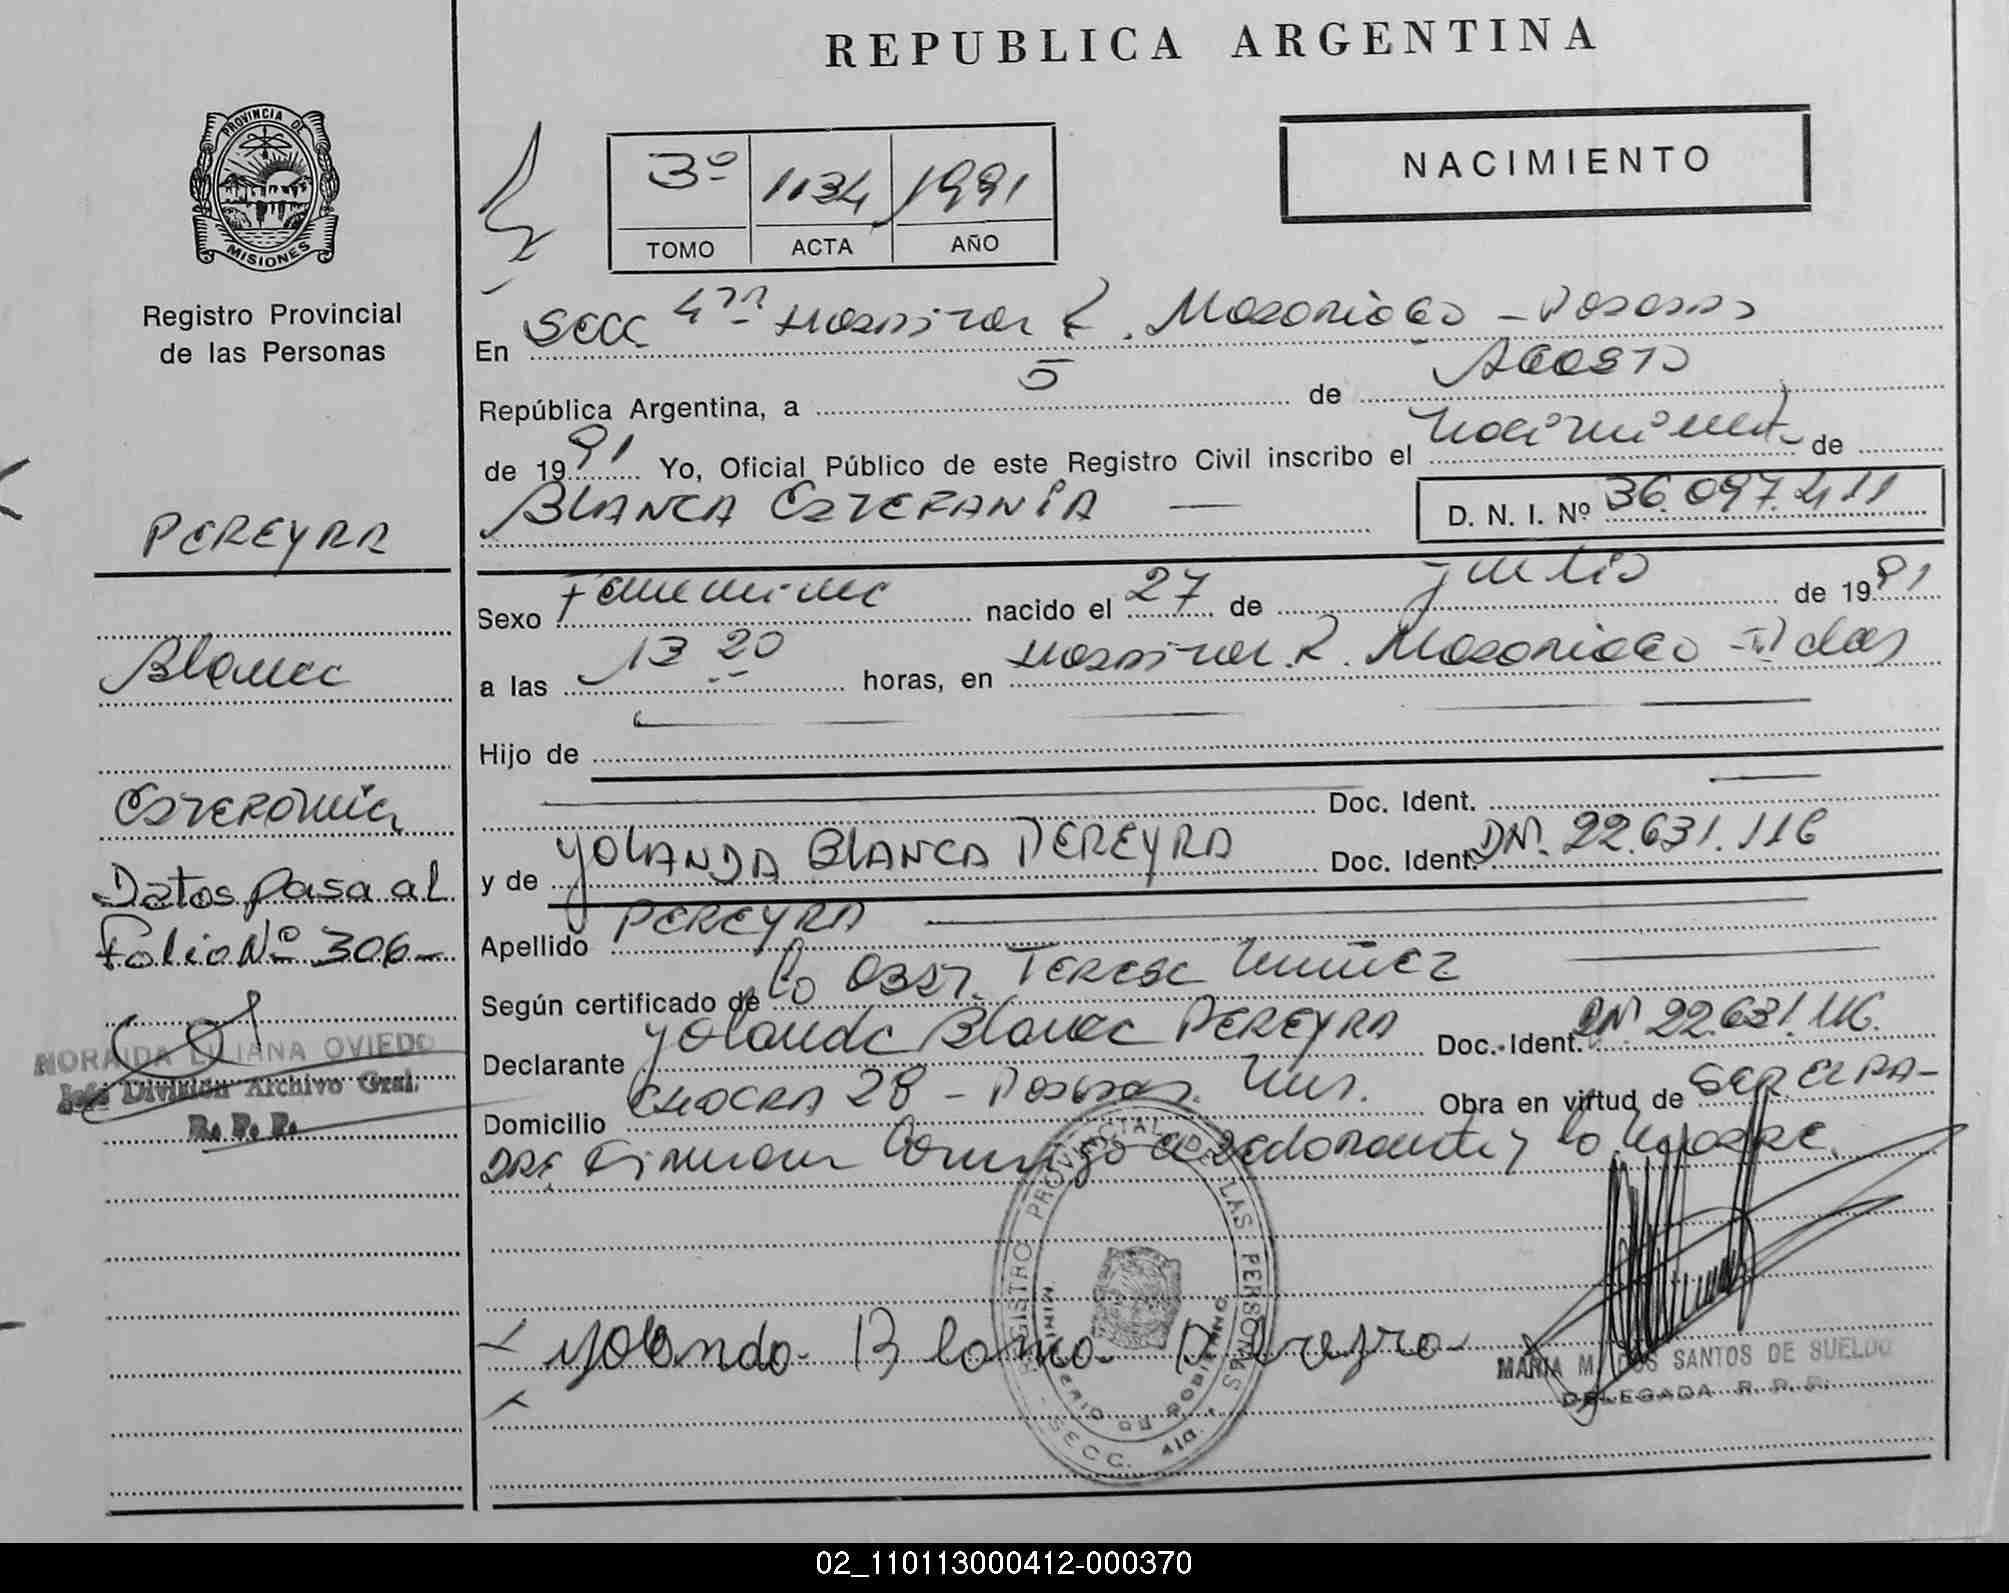 REPUBLICA ARGENTINA
PROVINCIA DE
MISIONES
Registro Provincial
de las Personas
3º 1134 1991
TOMO ACTA AÑO
NACIMIENTO
En Secc 4ta Hospital R. Madariaga - Posadas
República Argentina, a 5 de Agosto
de 1991 Yo, Oficial Público de este Registro Civil inscribo el nacimiento de
BLANCA ESTEFANIA D. N. I. Nº 36.097.411
PEREYRA
Sexo Femenino nacido el 27 de Julio de 1991
Blanca
a las 13 20 horas, en Hospital R. Madariaga - Pdas
Hijo de
Doc. Ident.
Estefania
y de YOLANDA BLANCA PEREYRA Doc. Ident. DNI. 22.631.116
Datos pasa al
Folio Nº 306-
Apellido PEREYRA
Según certificado de la Obst. Teresa Nuñez
Declarante Yolanda Blanca PEREYRA Doc. Ident. DNI 22.631.116.
Domicilio CHACRA 28 - Posadas. Mns. Obra en virtud de SER EL PA-
DRE Firman Conmigo el declarante y la Madre.
NORAIDA LILIANA OVIEDO
Jefe División Archivo Gral.
R. P. P.
REGISTRO PROVINCIAL DE LAS PERSONAS
MINISTERIO DE GOBIERNO
SECC. 4ta.
Yolanda Blanca Pereyra
MARIA M. DOS SANTOS DE SUELDO
DELEGADA R. P. P.
02_110113000412-000370